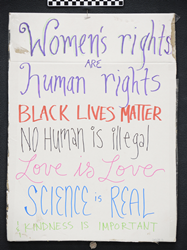 Women's rights
ARE
human rights
BLACK LIVES MATTER
NO Human is illegal
Love is Love
SCIENCE is REAL
KINDNESS IS IMPORTANT